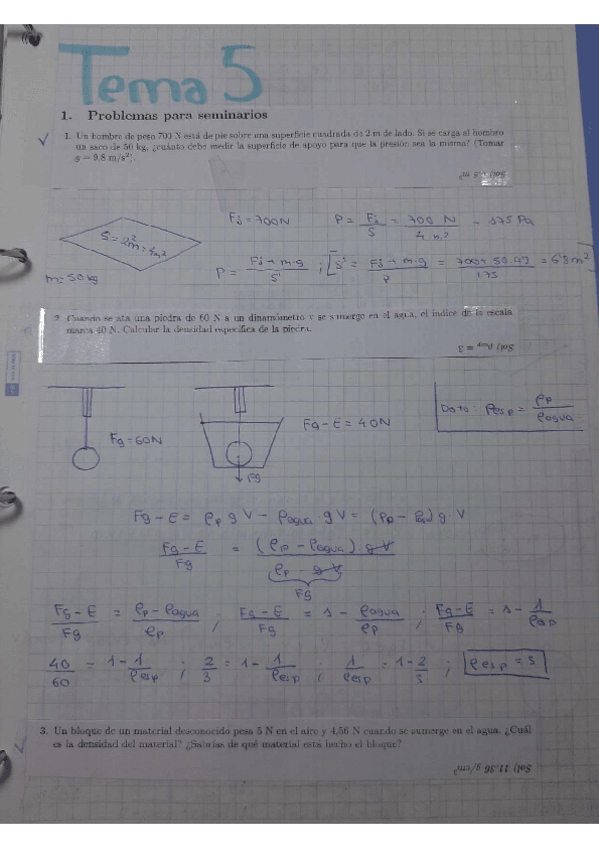 Tema 5
1. Problemas para seminarios
1. Un hombre de peso 700 N está de pie sobre una superficie cuadrada de 2 m de lado. Si se carga al hombro
un saco de 50 kg, ¿cuánto debe medir la superficie de apoyo para que la presión sea la misma? (Tomar
= 9,8 m/s²).
Sol)
S = 2²m = 4m²
m = 50 kg
F₁ = 700N
P = F₁/S = 700 N/4 m² = 175 Pa
P = F₁ + m·g/S' ; S' = F₁ + m·g/P = /175 = m²
2. Cuando se ata una piedra de 60 N a un dinamómetro y se sumerge en el agua, el índice de la escala
marca 40 N. Calcular la densidad específica de la piedra.
Sol) = 3
Fg = 60N
Fg - E = 40N
Fg
Dato: ρesp = ρp/ρagua
Fg - E = ρp g V - ρagua · g V = g · V
Fg - E/Fg = (ρp - ρagua) · g V/ρp · g V
Fg
Fg - E/Fg = ρp - ρagua/ρp ; Fg - E/Fg = 1 - ρagua/ρp ; Fg - E/Fg = 1 - 1/ρesp
40/60 = 1 - 1/ρesp ; 2/3 = 1 - 1/ρesp ; 1/ρesp = 1 - 2/3 ; ρesp = 3
3. Un bloque de un material desconocido pesa 5 N en el aire y 4,56 N cuando se sumerge en el agua. ¿Cuál
es la densidad del material? ¿Sabrías de qué material está hecho el bloque?
Sol) 11.36 g/cm³